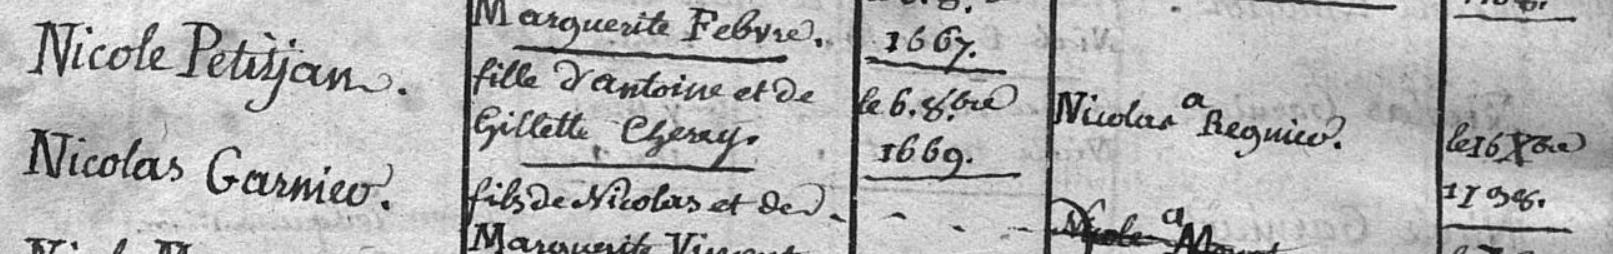 Marguerite Febvre.
1667.
Nicole Petitjan.
fille d'antoine et de
Gillette Cheray.
le 6. 8.bre
1669.
Nicolas a Regnier.
le 16 Xbre
1708.
Nicolas Garnier.
fils de Nicolas et de
Marguerite Vincent
Nicole a